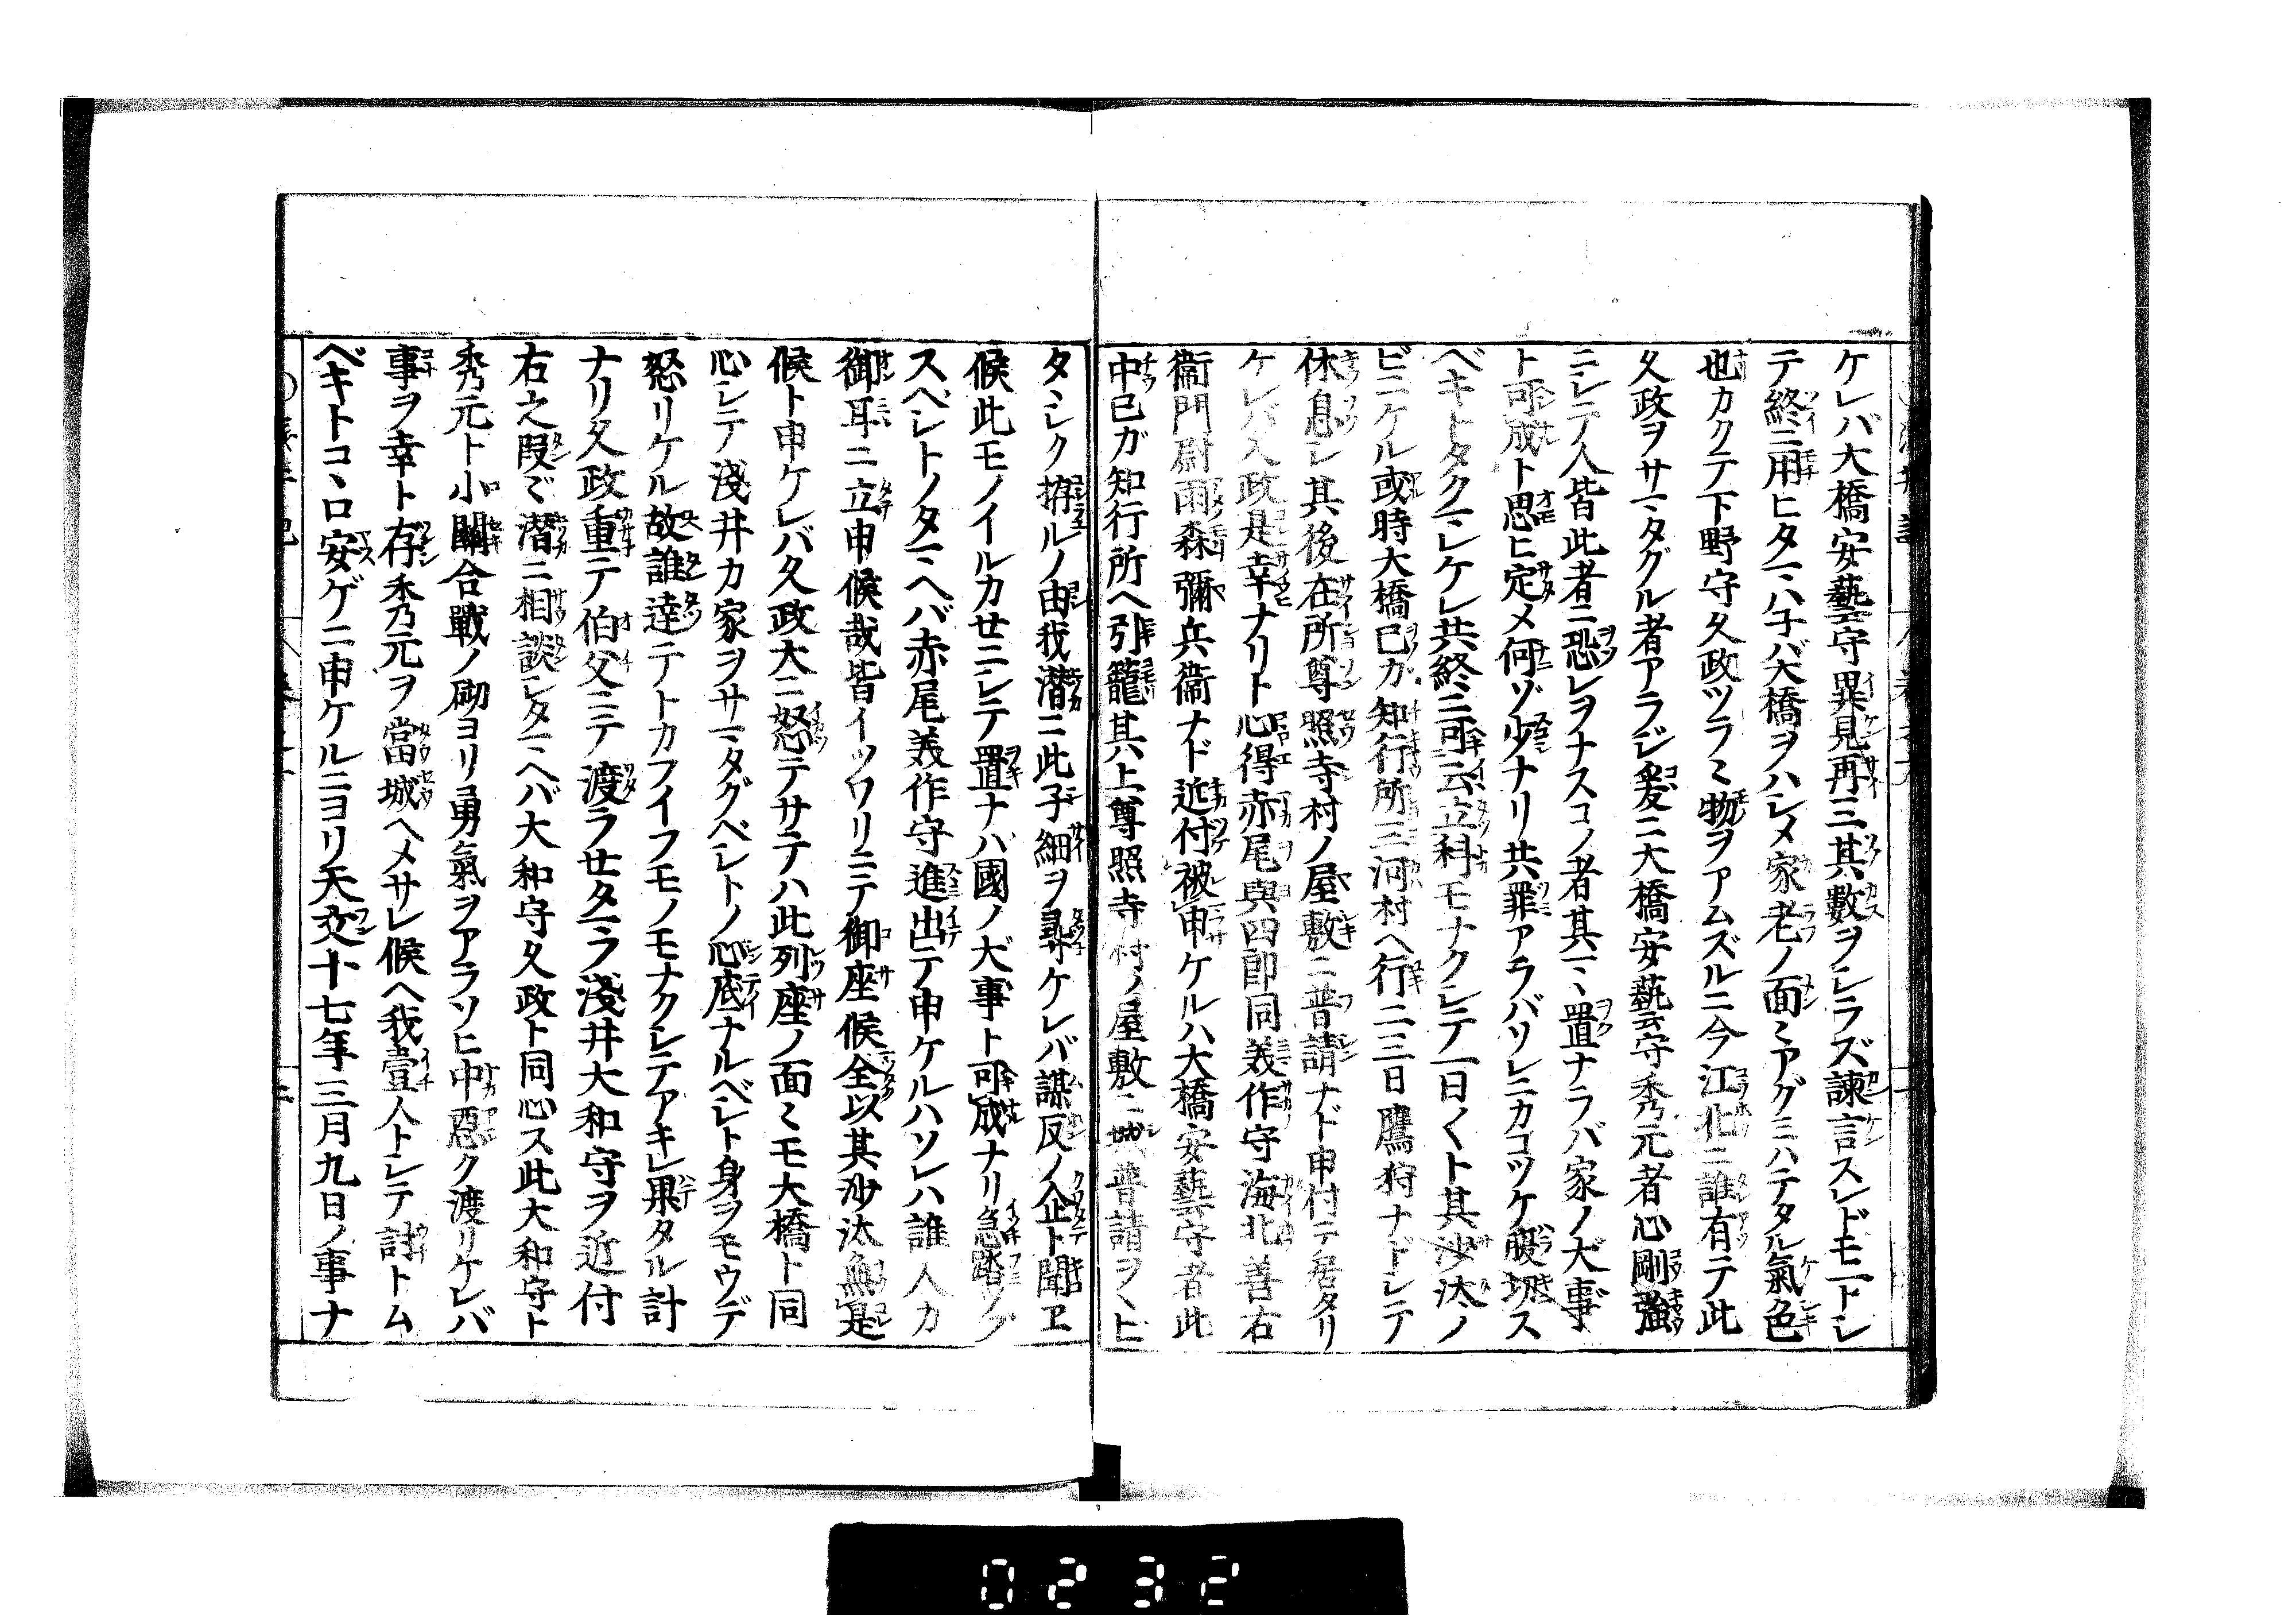 ケレバ大橋安藝守異見再三其數ヲシラズ諫言スレドモ一トシ
テ終ニ用ヒタマハ子バ大橋ヲハシメ家老ノ面〻アグミハテタル氣色
也カクテ下野守久政ツラ〻物ヲアムズルニ今江北ニ誰有テ此
久政ヲサマタグル者アラジ爰ニ大橋安藝守秀元者心剛強
ニシテ人皆此者ニ恐レヲナスコノ者其マヽ置ナラバ家ノ大事
ト可成ト思ヒ定メ何ゾ少ナリ共罪アラバソレニカコツケ腹切ス
ベキトタクマレケレ共終ニ可云立科モナクシテ一日〱ト其沙汰ノ
ビニケル或時大橋已ガ知行所三河村ヘ行二三日鷹狩ナドシテ
休息シ其後在所尊照寺村ノ屋敷ニ普請ナド申付テ居タリ
ケレバ久政是幸ナリト心得赤尾與四郎同美作守海北善右
衞門尉雨森彌兵衞ナド近付被申ケルハ大橋安藝守者此
中已ガ知行所ヘ引籠其上尊照寺村ノ屋敷ニ城普請ヲヽヒ
タヽシク拵ルノ由我潜ニ此子細ヲ尋ケレバ謀反ノ企ト聞エ
候此モノイルカセニシテ置ナバ國ノ大事ト可成ナリ急踏ツブ
スベシトノタマヘバ赤尾美作守進出テ申ケルハソレハ誰人カ
御耳ニ立申候哉皆イツワリニテ御座候全以其沙汰無是
候ト申ケレバ久政大ニ怒テサテハ此列座ノ面〻モ大橋ト同
心シテ淺井カ家ヲサマタグベシトノ心底ナルベシト身ヲモウデ
怒リケル故誰達テトカフイフモノモナクシテアキレ果タル計
ナリ久政重テ伯父ミテ渡ラせタマフ淺井大和守ヲ近付
右之叚ヾ潜ニ相談シタマヘバ大和守久政ト同心ス此大和守ト
秀元ト小關合戰ノ砌ヨリ勇氣ヲアラソヒ中惡ク渡リケレバ
事ヲ幸ト存秀元ヲ當城ヘメサレ候ヘ我壹人トシテ討トム
ベキトコヽロ安ゲニ申ケルニヨリ天文十七年三月九日ノ事ナ
0232